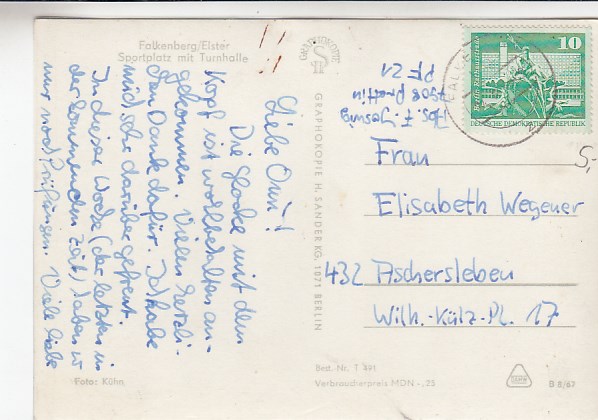 Falkenberg/Elster
Sportplatz mit Turnhalle
Liebe Omi!
Die Glocke mit dem
Kopf ist wohlbehalten an-
gekommen. Vielen herzli-
chen Dank dafür. Ich habe
mich sehr darüber gefreut.
In dieser Woche (der letzten in
der kommenden Zeit) haben w
nur noch Prüfungen. Viele liebe
Foto: Kühn
GRAPHOKOPIE
GRAPHOKOPIE H. SANDER KG. 1071 BERLIN
Abs. F.
7908 Prettin
PF 21
10
DEUTSCHE DEMOKRATISCHE REPUBLIK
Frau
Elisabeth Wegener
432 Aschersleben
Wilh.-Külz-Pl. 17
5,-
Best.-Nr. T 491
Verbraucherpreis MDN -,25
B 8/67